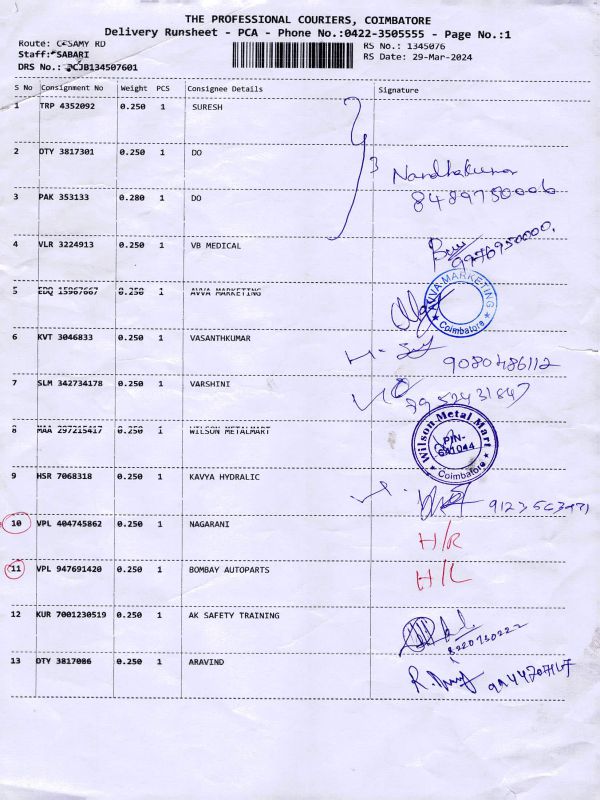 THE PROFESSIONAL COURIERS, COIMBATORE
Delivery Runsheet - PCA - Phone No.:0422-3505555 - Page No.:1
Route: SAMY RD
Staff: SABARI
DRS No.: PCJB134507601
RS No.: 1345076
RS Date: 29-Mar-2024
S No Consignment No Weight PCS Consignee Details Signature
1 TRP 4352092 0.250 1 SURESH
2 DTY 3817301 0.250 1 DO
3
Nandhakumar
8489750006
3 PAK 353133 0.280 1 DO
4 VLR 3224913 0.250 1 VB MEDICAL
9976950000.
5 EDQ 15967667 0.250 1 AVVA MARKETING
AVVA MARKETING
Coimbatore
6 KVT 3046833 0.250 1 VASANTHKUMAR
9080486112
7 SLM 342734178 0.250 1 VARSHINI
8 MAA 297215417 0.250 1 WILSON METALMART
Wilson Metal Mart
PIN-
641044
Coimbatore
9 HSR 7068318 0.250 1 KAVYA HYDRALIC
10 VPL 404745862 0.250 1 NAGARANI
H/R
11 VPL 947691420 0.250 1 BOMBAY AUTOPARTS
H/L
12 KUR 7001230519 0.250 1 AK SAFETY TRAINING
8220730222
13 DTY 3817086 0.250 1 ARAVIND